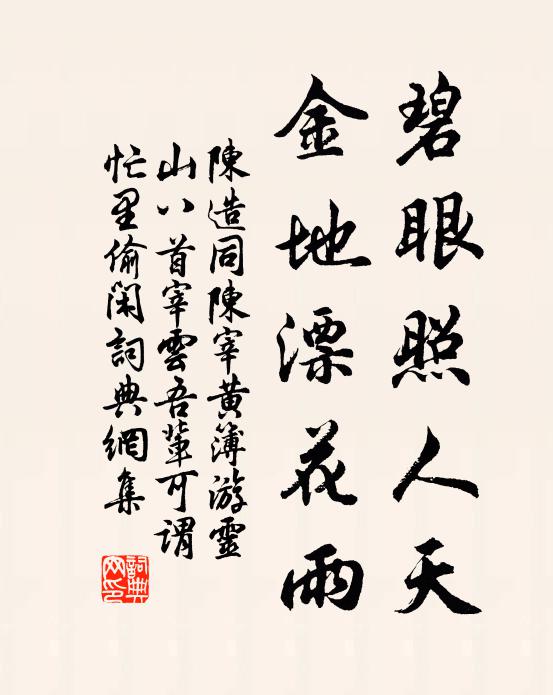 碧眼照人天
金地漂花雨
陳造同陳宰黄簿游靈
山八首宰雲吾輩可謂
忙里偷閑詞典網集
詞典
网印